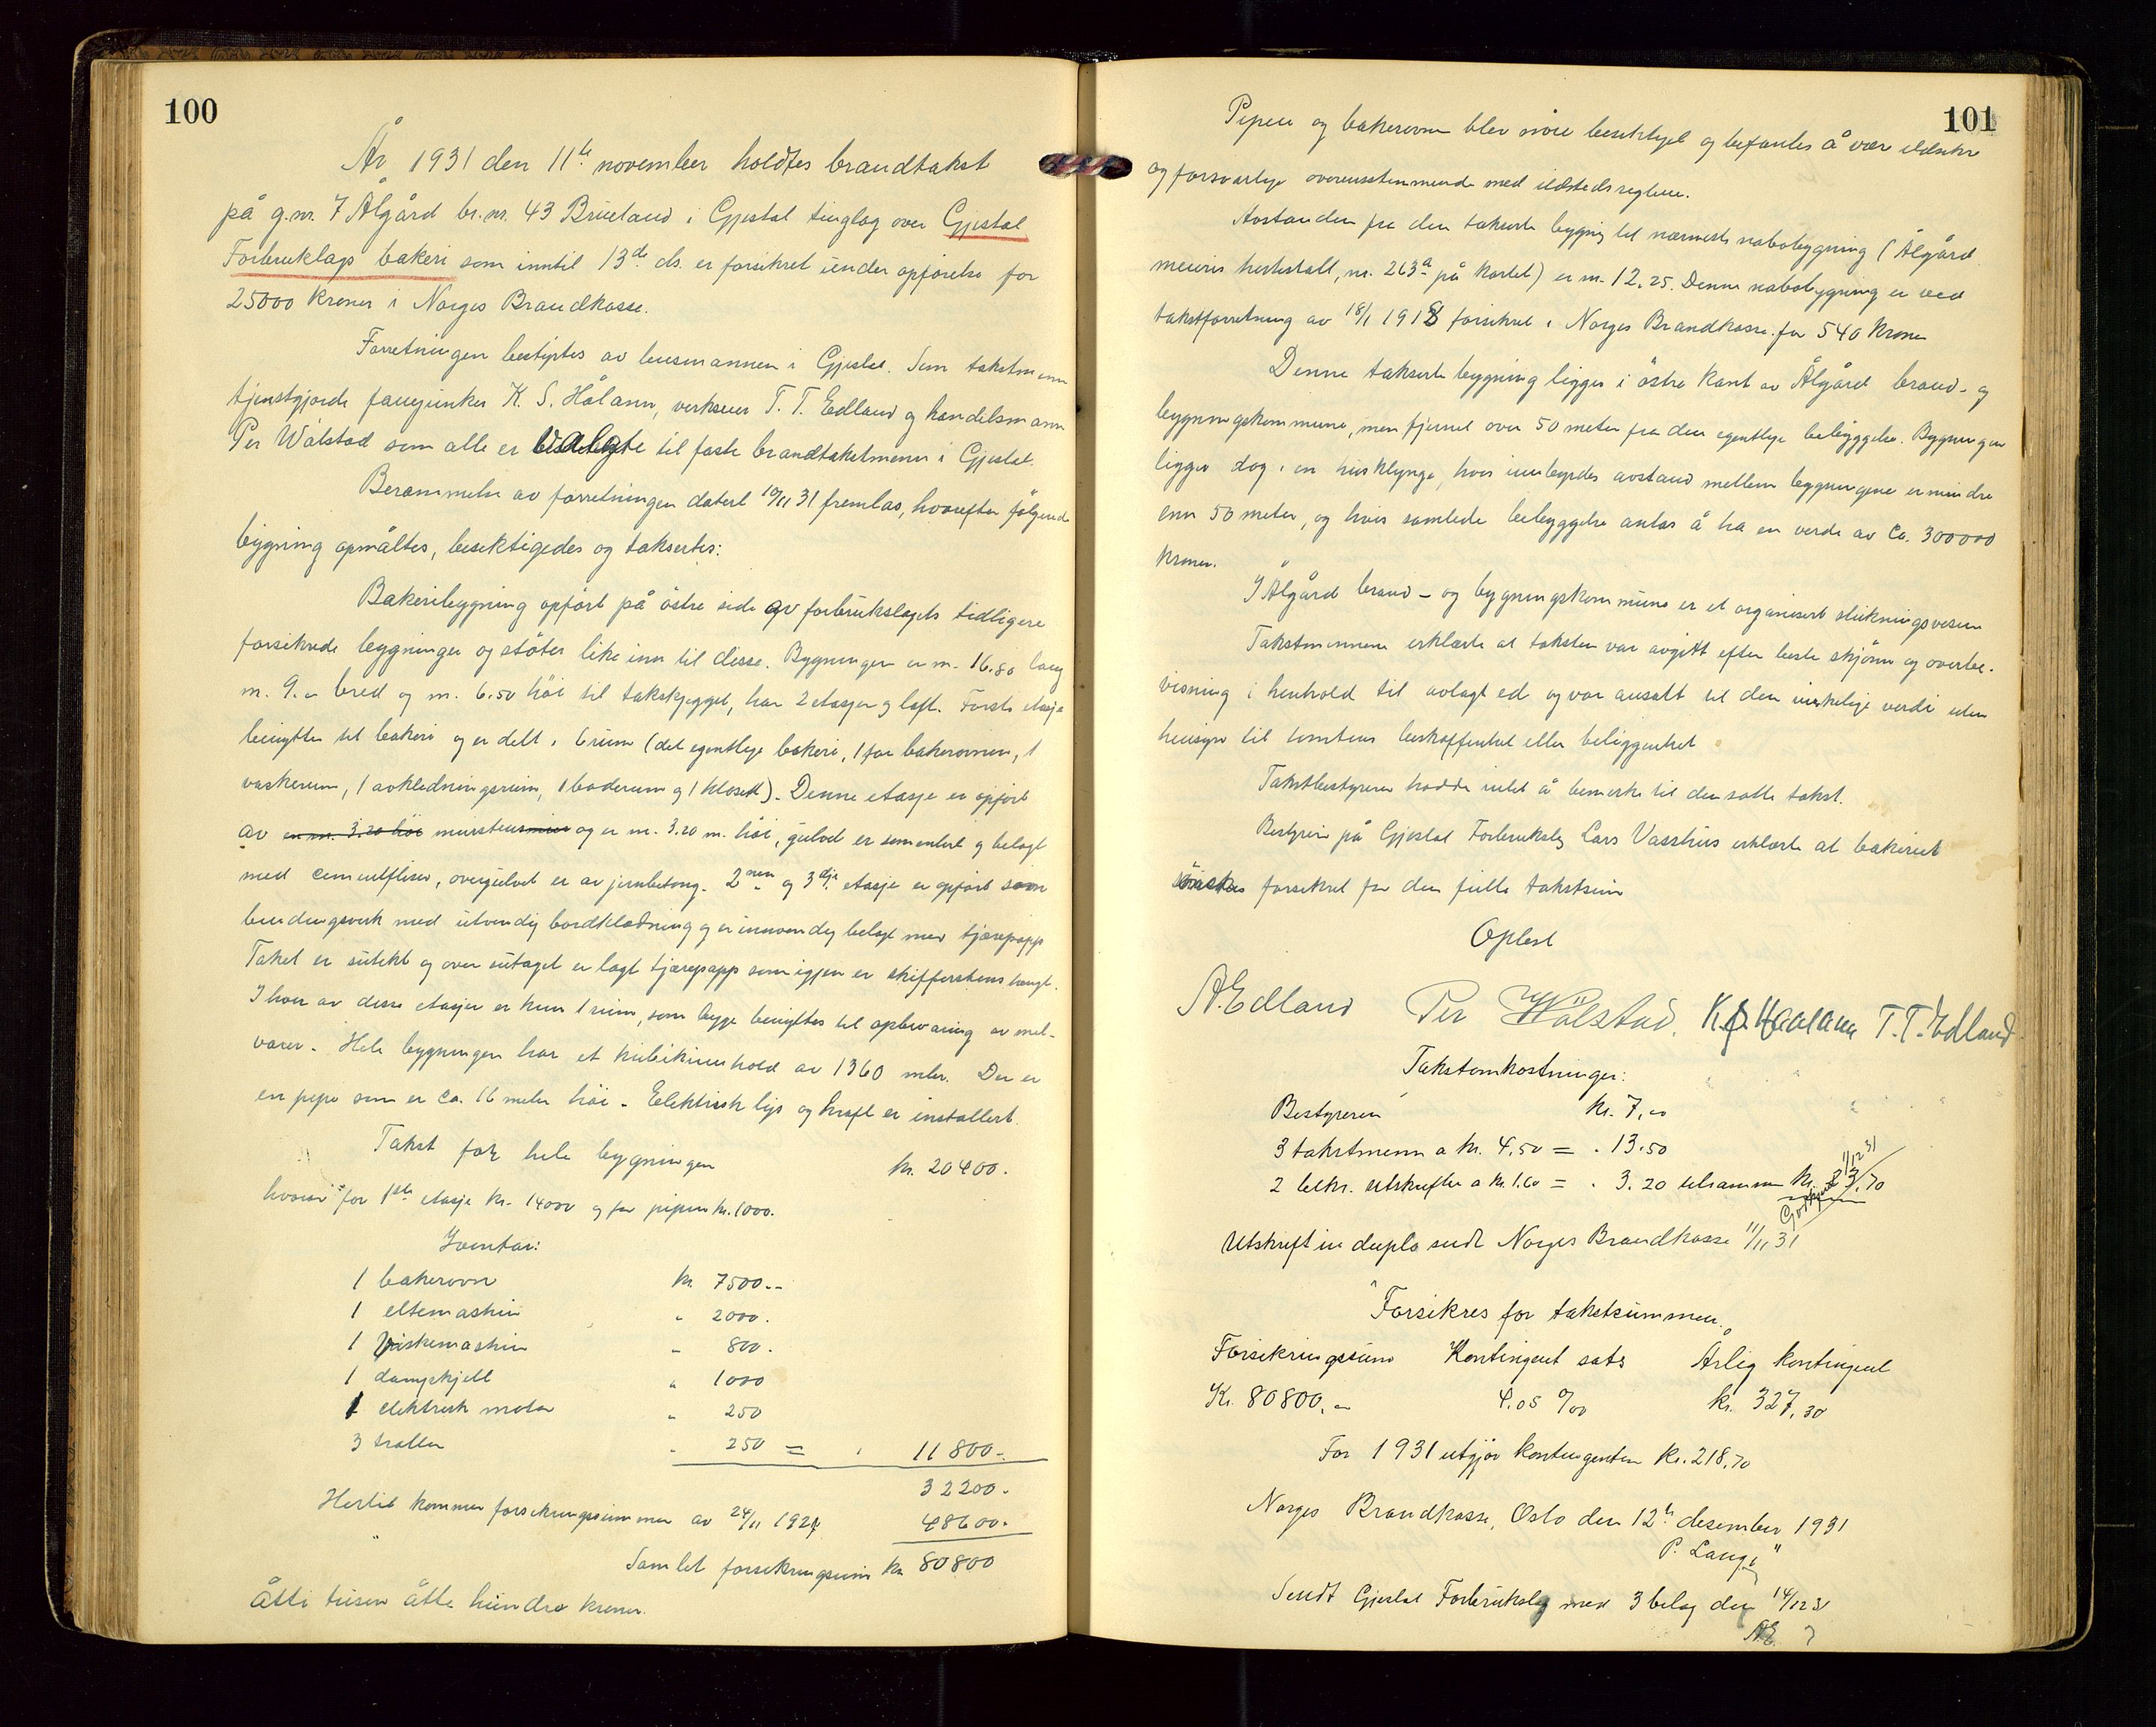 100
År 1931 den 11te november holdtes brandtakst
på g.nr. 7 Ålgård br.nr. 43 Brueland i Gjestal tinglag over Gjestal
Forbrukslags bakeri som inntil 13de ds. er forsikret under opførelse for
25000 kroner i Norges Brandkasse.
Forretningen bestyrtes av lensmannen i Gjestal. Som takstmenn
tjenstgjorde fanejunker K. S. Hålann, verkseier T. T. Edland og handelsmann
Per Wålstad som alle er valgte til faste brandtakstmenn i Gjestal.
Berammelse av forretningen datert 10/11 31 fremlas, hvorefter følgende
bygning opmåltes, besiktigedes og taksertes:
Bakeribygning opført på østre side av forbrukslagets tidligere
forsikrede bygninger og støter like inn til disse. Bygningen er m. 16.80 lang
m. 9.00 bred og m. 6.50 høi til takskjegget, har 2 etasjer og loft. Første etasje
benyttes til bakeri og er delt i 6 rum (det egentlige bakeri, 1 for bakerovnen, 1
vaskerum, 1 avkledningsrum, 1 baderum og 1 klosett). Denne etasje er opført
av en m. 3.20 høi murstensmur og er m. 3.20 m. høi, gulvet er sementert og belagt
med cementfliser, overgulvet er av jernbetong. 2nen og 3dje etasje er opført som
bindingsverk med utvendig bordklædning og er innvendig belagt med tjærepapp
Taket er sutekt og over sutaget er lagt tjærepapp som igjen er skifferstenshengt.
I hver av disse etasjer er kun 1 rum, som begge benyttes til opbevaring av mel-
varer. Hele bygningen har et kubikinnhold av 1360 mtr. Der er
en pipe som er ca. 16 meter høi. Elektrisk lys og kraft er installert.
Takst for hele bygningen kr. 20400.
hvorav for 1ste etasje kr. 14000 og for pipen kr. 1000.
Inventar:
1 bakerovn kr. 7500.-
1 eltemaskin " 2000.
1 piskemaskin " 800.
1 dampkjell " 1000
1 elektrisk motor " 250
3 traller " 250 = " 11800.-
32200.
Hertil kommer forsikringssummen av 24/11 1927 48600.
Samlet forsikringssum kr. 80800
Åtti tusen åtte hundre kroner.
101
Pipen og bakerovnen blev nøie besiktiget og befantes å være ildsikre
og forsvarlige overensstemmende med ildstedsreglene.
Avstanden fra den takserte bygning til nærmeste nabobygning (Ålgård
meieris hestestall, nr. 263a på kartet) er m. 12.25. Denne nabobygning er ved
takstforretning av 18/1 1918 forsikret i Norges Brandkasse for 540 kroner
Denne takserte bygning ligger i østre kant av Ålgård brand- og
bygningskommune, men fjernet over 50 meter fra den egentlige bebyggelse. Bygningen
ligger dog i en husklynge, hvis innbyrdes avstand mellem bygningene er mindre
enn 50 meter, og hvis samlede bebyggelse antas å ha en verdi av ca. 300000
kroner.
I Ålgård brand- og bygningskommune er et organisert slukningsvesen
Takstmennene erklærte at taksten var avgitt efter beste skjønn og overbe-
visning i henhold til avlagt ed og var ansatt til den virkelige verdi uten
hensyn til tomtens beskaffenhet eller beliggenhet.
Takstbestyreren hadde intet å bemerke til den satte takst.
Bestyrer på Gjestal Forbrukslag Lars Vasshus erklærte at bakeriet
ønskes forsikret for den fulle takstsum
Oplest
A. Edland Per Wålstad. K. S. Haaland T. T. Edland
Takstomkostninger:
Bestyreren kr. 7,00
3 takstmenn a kr. 4.50 = " 13.50
2 bekr. utskrifter a kr. 1.60 = " 3.20 tilsammen kr. 23,70
Godkjent 1/12 31
Utskrift in duplo sendt Norges Brandkasse 11/11 31
"Forsikres for takstsummen.
Forsikringssum Kontingent sats Årlig kontingent
Kr. 80800,00 4.05 ‰ kr. 327,30
For 1931 utgjør kontingenten kr. 218,70
Norges Brandkasse, Oslo den 12te desember 1931
P. Lange"
Sendt Gjestal Forbrukslag med 3 belag den 14/12 31
AE